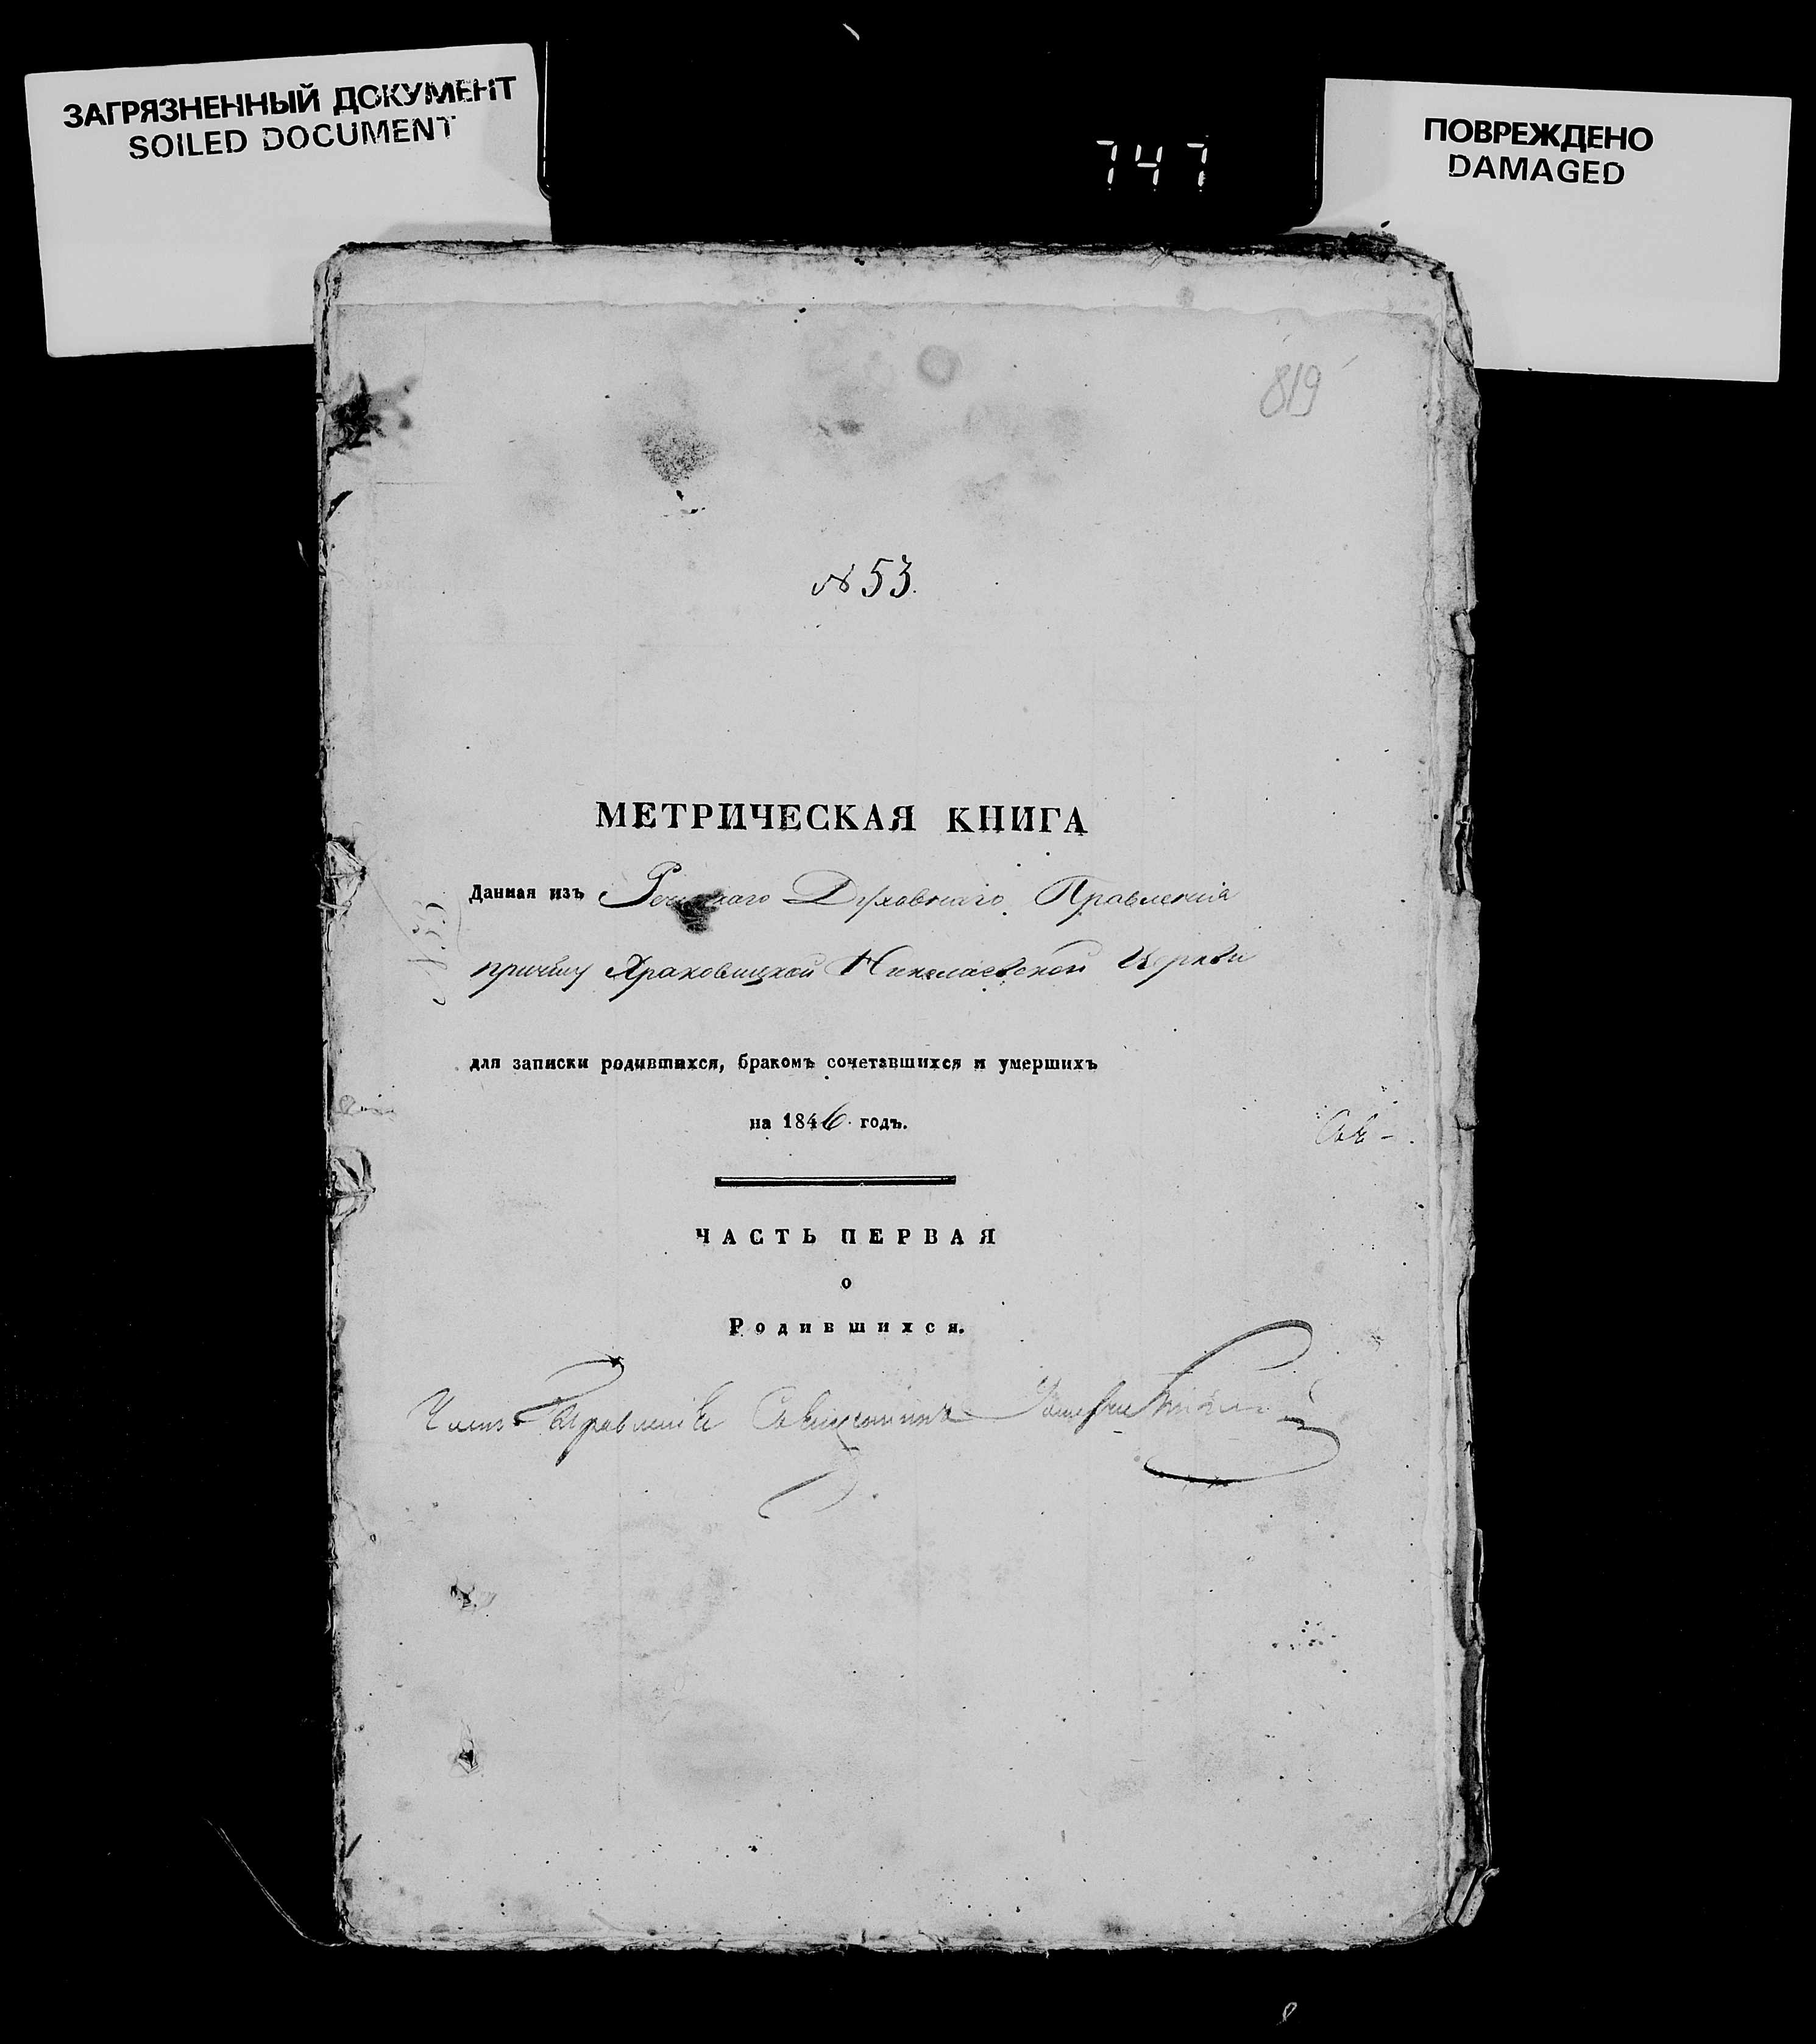 ЗАГРЯЗНЕННЫЙ ДОКУМЕНТ
SOILED DOCUMENT
747
ПОВРЕЖДЕНО
DAMAGED
819
№ 53.
МЕТРИЧЕСКАЯ КНИГА
Данная изъ Духовнаго Правленія
причту Храковицкой Николаевской Церкви
№53
для записки родившихся, бракомъ сочетавшихся и умершихъ
на 1846 годъ.
ЧАСТЬ ПЕРВАЯ
о
Родившихся.
Членъ Правленія Священникъ